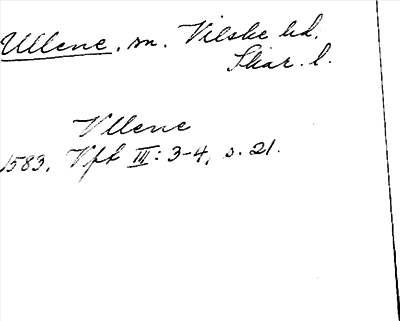 Ullene, sn. Vilske hd.
Skar. l.
Vllene
1583. Vft III: 3-4, s. 21.